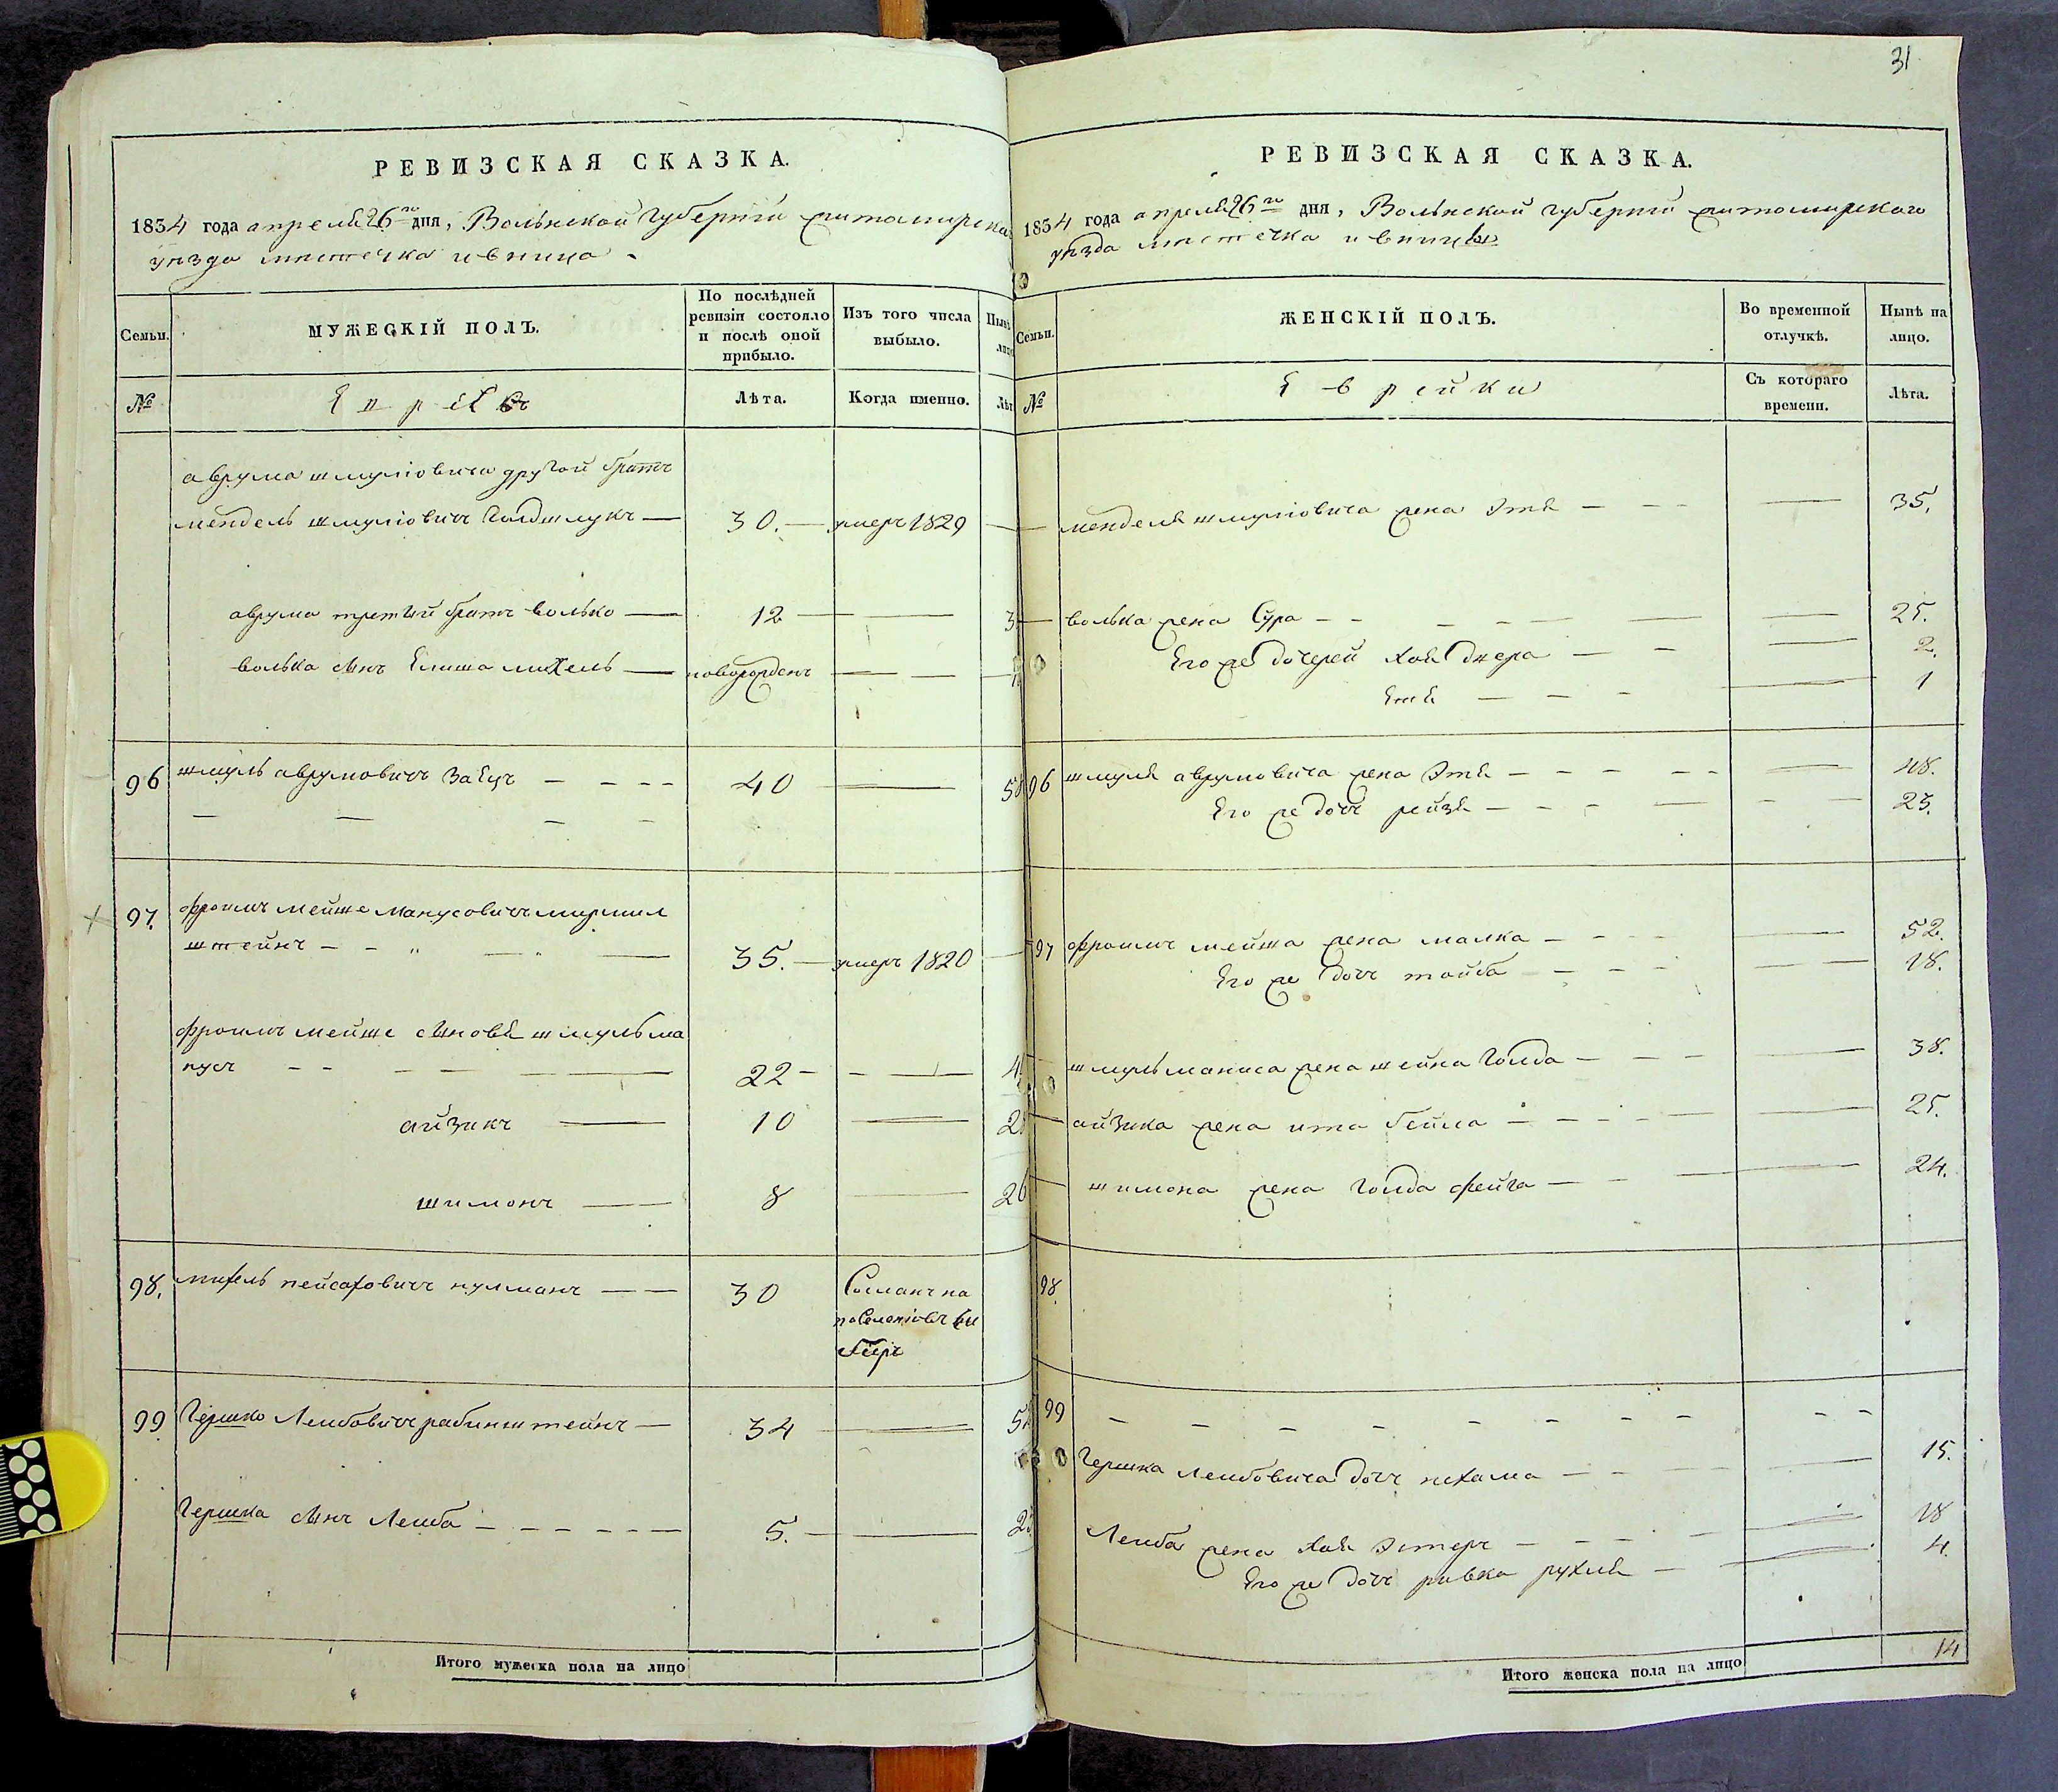 РЕВИЗСКАЯ СКАЗКА.
1834 года апреля 26го дня, Волынской Губернiи житомирска
уезда местечка ивница
Семьи.
МУЖЕСКІЙ ПОЛЪ.
По послѣдней ревизіи состояло и послѣ оной прибыло.
Изъ того числа выбыло.
Нынѣ
№
Евреи
Лѣта.
Когда именно.
Лѣт
аврума шмулiовича другой братъ
мендель шмулiовичъ Голдшлукъ — 30. — умеръ 1829
аврума третий братъ волько — 12 — 3
волька сынъ Елиша михель — новорожденъ —
96 шмуль аврумовичъ Заецъ — 40 — 5
97. фроимъ мейше манусовичъ мирмил
штейнъ — 35. — умеръ 1820
фроимъ мейше сыновя шмуль ма
нусъ — 22 — 4
айзикъ — 10 — 2
шимонъ — 8 — 26
98. михель пейсаховичъ кулманъ — 30 Сосланъ на
поселенiовъ си
биръ
99 Гершко Лейбовичъ рабинштейнъ — 34 — 5
Гершка сынъ Лейба — 5. — 2
Итого мужеска пола на лицо
31
РЕВИЗСКАЯ СКАЗКА.
1834 года апреля 26го дня, Волынской Губернiи житомирскаго
уезда местечка ивницы
Семьи.
ЖЕНСКІЙ ПОЛЪ.
Во временной отлучкѣ.
Нынѣ на лицо.
№
Еврейки
Съ котораго времени.
Лѣта.
менделя шмулiовича жена Этя — 35.
волька жена Сура — 25.
Его же дочерей хая Двера — 2.
Етя — 1
96 шмуля аврумовича жена Этя — 48.
Его же дочъ рейзя — 23.
97 фроимъ мейша жена малка — 52.
Его же дочъ тойба — 18.
шмуль мануса жена шейна Голда — 38.
айзика жена ита бейла — 25.
шимона жена Голда фейга — 24.
98.
99
Гершка лейбовича дочъ нехама — 15.
Лейба жена хая Эстеръ — 18
Его же дочъ ривка рухля — 4.
Итого женска пола на лицо 14